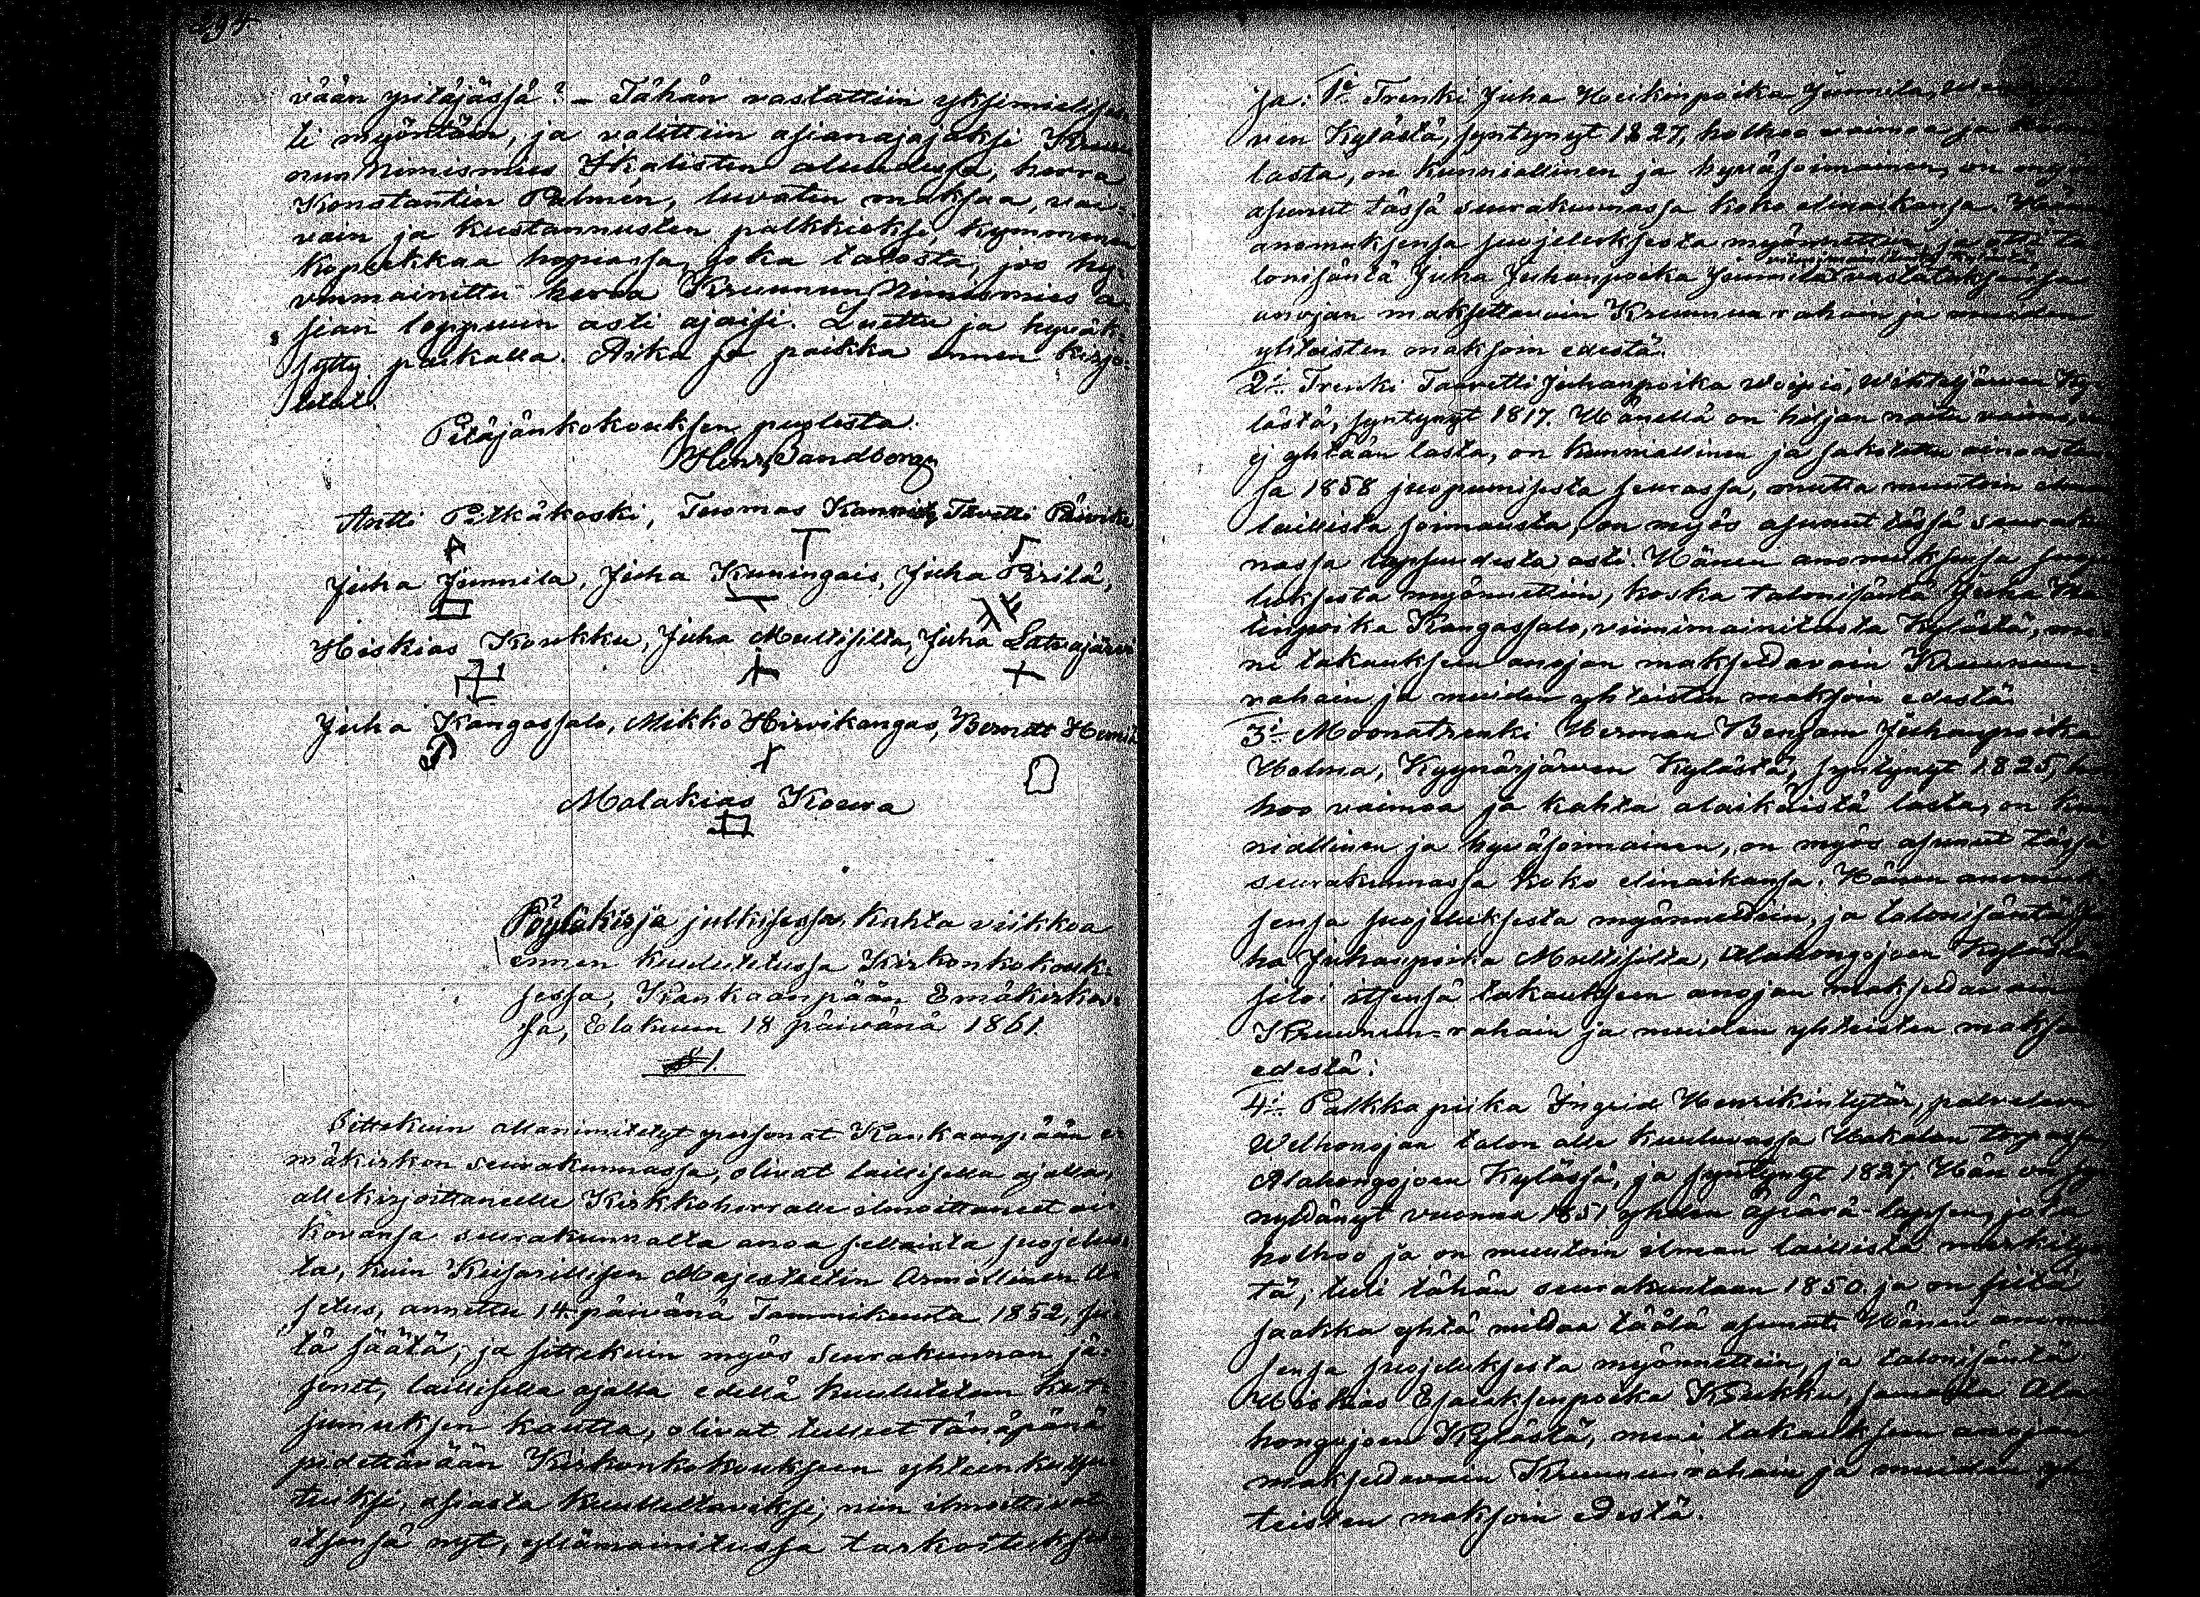 294
vään pitäjässä? – Tähän vastattiin yksimielises-
ti myöntäen, ja valittiin asianajajaksi Kruu-
nun Nimismies Ikalisten alueelessa, herra
Konstantin Palmén, luvaten maksaa, vai-
vain ja kustannusten palkkioksi, kymmenen
kopeekkaa hopiassa, joka talosta, jos hy-
vinmainittu herra Kruunun Nimismies a-
sian loppuun asti ajaisi. Luettu ja hyväk-
sytty paikalla. Aika ja paikka ennen kirjo-
tetut.
Pitäjänkokouksen puolesta.
Henr. Sandborg
Antti Pitkäkoski, Tuomas Kannisto, Tavetti
Juha Junnila, Juha Kuningais, Juha Perilä,
Hiskias Koukku, Juha Multisilta, Juha Latvajärvi
Juha Kangassalo, Mikko Hirvikangas, Bernett
Malakias Koura
Pöytäkirja julkisessa, kahta viikkoa
ennen kuulutetussa Kirkonkokouk-
sessa, Kankaanpään Emäkirkos-
sa, Elokuun 18 päivänä 1861.
§ 1.
Sittekuin allanimitetyt personat Kankaanpään e-
mäkirkon seurakunnassa, olivat laillisella ajalla,
allekirjoittaneelle Kirkkoherralle ilmoittaneet ai-
kovansa seurakunnalta anoa sellaista suojelus-
ta, kuin Keisarillisen Majesteetin Armollinen A-
setus, annettu 14 päivänä Tammikuuta 1852, sii-
tä säätä, ja sittekuin myös Seurakunnan jä-
senet, laillisella ajalla edellä kuulutetun kut-
sumuksen kautta, olivat tulleet tänäpänä
pidettävään Kirkonkokoukseen yhteenkutsu-
tuiksi, asiasta kuulluttaviksi; niin ilmoittivat
itsensä nyt, ylämainitussa tarkoituksessa
sa: 1:o Trenki Juha Heikinpoika Junnila,
ven Kylästä, syntynyt 1827, holhoo vaimoa ja
lasta, on kunniallinen ja hyväsoimainen, on myös
asunut tässä seurakunnassa koko elinaikansa. Hänen
anomuksensa suojeluksesta myönnettiin, ja otti ta-
lonisäntä Juha Juhanpoika Junnila vastataksensa
anojan maksettavain Kruunun rahain ja muiden
yhteisten maksoin edestä.
2:o Trenki Taavetti Juhanpoika Woipio, Wihtejärven Ky-
lästä, syntynyt 1817. Hänellä on hiljan naitu vaimo,
ej yhtään lasta, on kunniallinen ja sakotettu ainoastan-
sa 1858 juopumisesta seurassa, mutta muutoin ilman
laillista soimausta, on myös asunut tässä seurakun-
nassa lapsuudesta asti. Hänen anomuksensa suoje-
luksesta myönnettiin, koska talonisäntä Juha Ma-
tinpoika Kangassalo, viimimainitusta Kylästä, me-
ni takaukseen anojan maksettavain Kruunun-
rahain ja muiden yhteisten maksoin edestä.
3:o Moonatrenki Herman Benjam Juhanpoika
Holma, Kyynärjärven Kylästä, syntynyt 1825, hol-
hoo vaimoa ja kahta alaikäistä lasta, on kun-
niallinen ja hyväsoimainen, on myös asunut tässä
seurakunnassa koko elinaikansa. Hänen anomuk-
sensa suojeluksesta myönnettiin, ja talonisäntä Ju-
ha Juhanpoika Multisilta, Alahongojoen Kylästä
sitoi itsensä takaukseen anojan maksettavain
Kruunun-rahain ja muiden yhteisten maksoin
edestä.
4:o Palkkapiika Ingrid Henrikintytär, palveleva
Welhonojan talon alle kuuluvassa Hakalan torpassa
Alahongojoen Kylässä, ja syntynyt 1827. Hän on syn-
nyttänyt vuonna 1851 yhden äpärä-lapsen, jota
holhoo ja on muutoin ilman laillista
tä, tuli tähän seurakuntaan 1850 ja on siitä
saakka yhtä mittaa täälä asunut. Hänen anomuk-
sensa suojeluksesta myönnettiin, ja talonisäntä
Hiskias Esaiaksenpoika Koukku, samasta Ala-
hongojoen Kylästä, meni takaukseen anojan
maksettavain Kruunun rahain ja muiden yh-
teisten maksoin edestä.